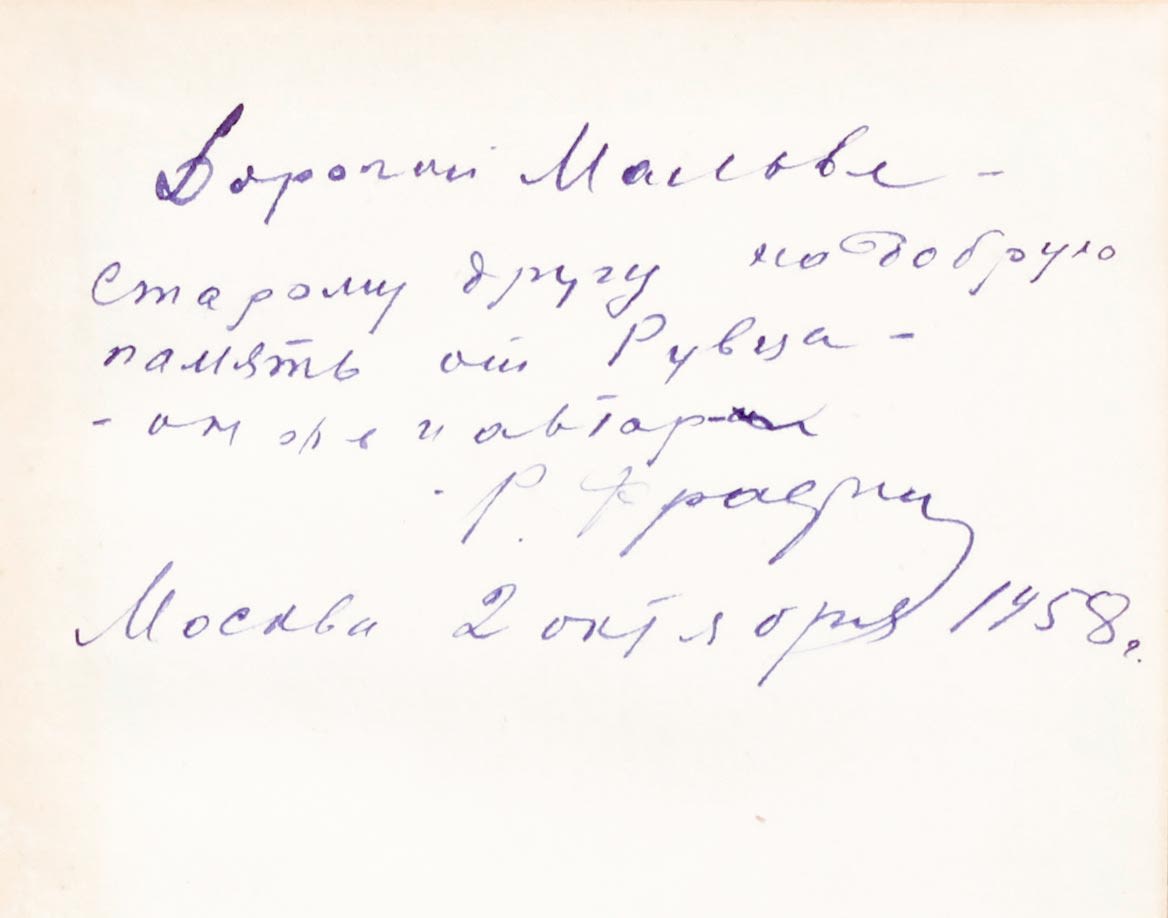 Дорогой Мальве -
старому другу на добрую
память от Рувца -
- он же и автор
Р. Фраерман
Москва 2 октября 1958 г.